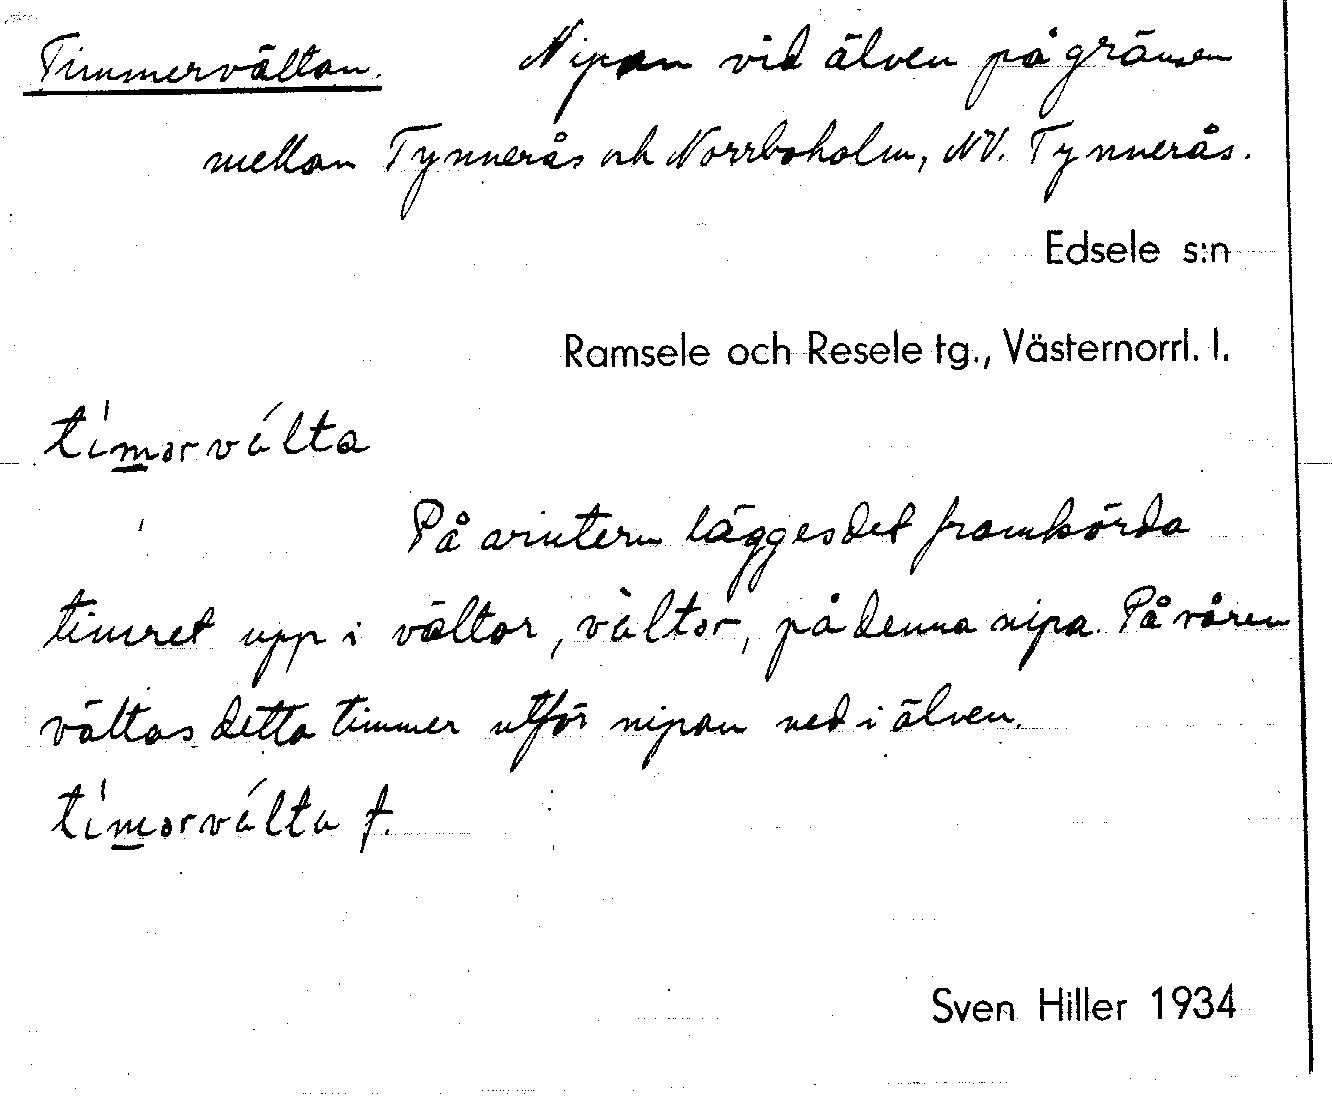 Timmervältan. Nipan vid älven på gränsen
mellan Tynnerås och Norrboholm, NV. Tynnerås.
Edsele s:n
Ramsele och Resele tg., Västernorrl. l.
tímərvä́lta
På vintern lägges det framkörda
timret upp i vältor, vältər, på denna nipa. På våren
vältas detta timmer utför nipan ned i älven.
tímərvä́lta f.
Sven Hiller 1934